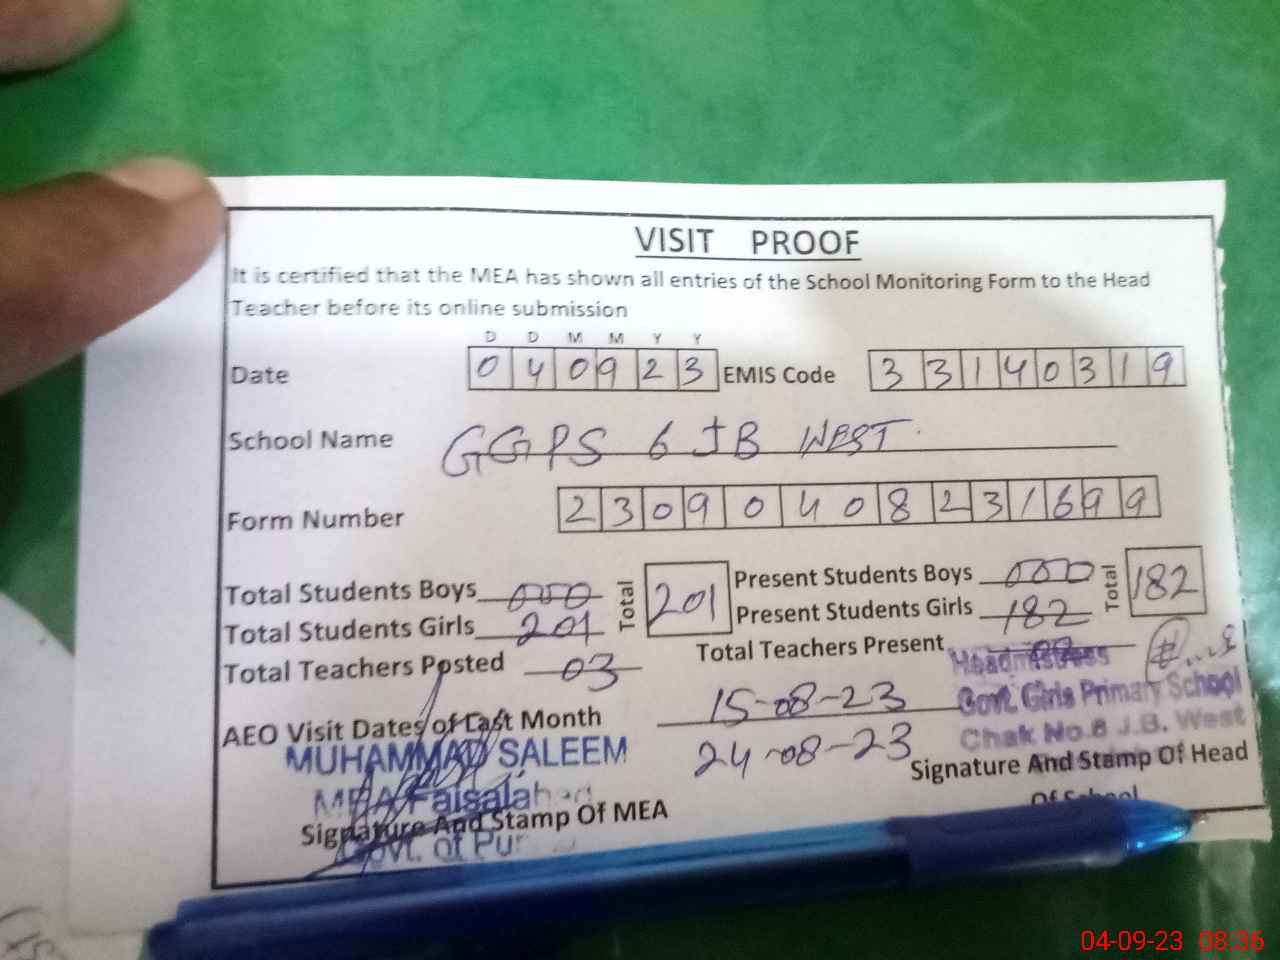 VISIT PROOF
It is certified that the MEA has shown all entries of the School Monitoring Form to the Head
Teacher before its online submission
D D M M Y Y
Date 0 4 0 9 2 3 EMIS Code 3 3 1 4 0 3 1 9
School Name GGPS 6 JB WEST.
Form Number 2 3 0 9 0 4 0 8 2 3 1 6 9 9
Total Students Boys 000 Total 201 Present Students Boys 000 Total 182
Total Students Girls 201 Present Students Girls 182
Total Teachers Posted 03 Total Teachers Present
Headmistress
Govt. Girls Primary School
Chak No.6 J.B. West
AEO Visit Dates of Last Month 15-08-23
24-08-23
MUHAMMAD SALEEM
MEA Faisalabad
Govt. of
Signature And Stamp Of MEA
Signature And Stamp Of Head
Of School
04-09-23 08:36